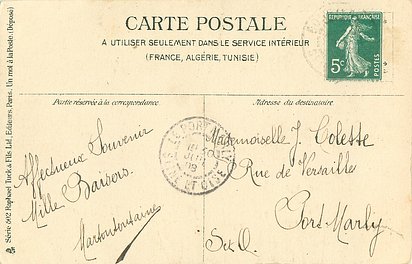 CARTE POSTALE
A UTILISER SEULEMENT DANS LE SERVICE INTÉRIEUR
(FRANCE, ALGÉRIE, TUNISIE)
REPUBLIQUE FRANÇAISE
5c
POSTES
Partie réservée à la correspondance
Adresse du destinataire
Affectueux Souvenir
Mille Baisers
Mademoiselle J. Colette
Rue de Versailles
Port-Marly
S & O.
LE PORT-MARLY
SEINE ET OISE
Série 502 Raphael Tuck & Fils Ltd, Editeurs, Paris. Un mot à la Poste. (Déposé)